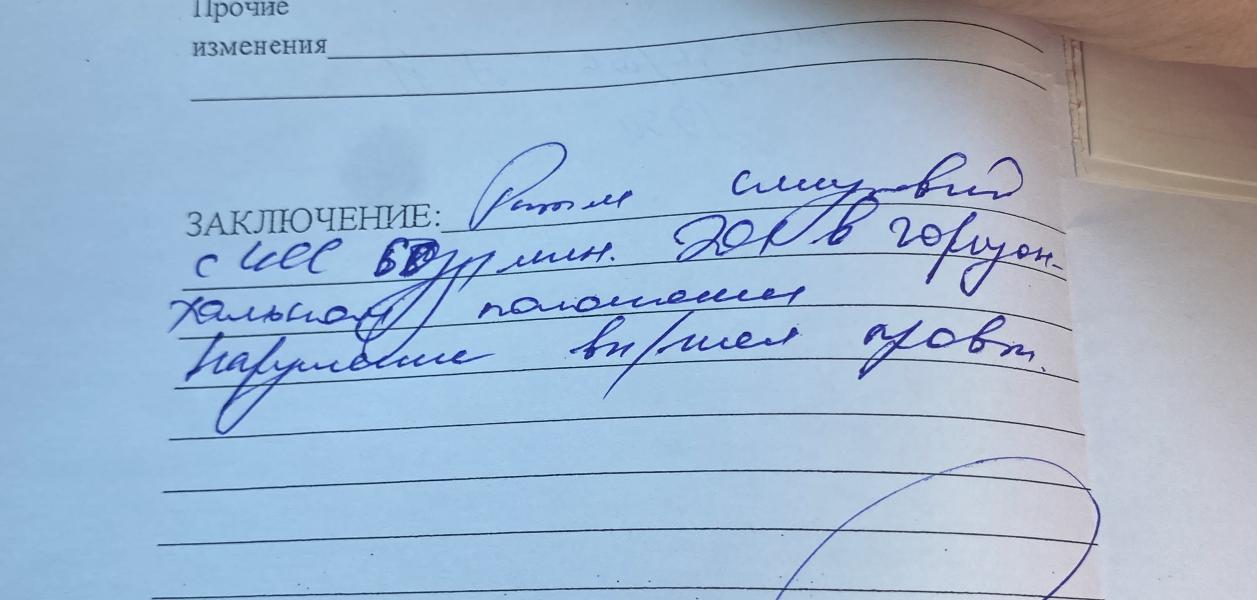 Прочие
изменения
ЗАКЛЮЧЕНИЕ: Ритм синусовый
с ЧСС уд/мин. ЭОС в горизон-
тальном положении
Нарушение вн/жел пров.